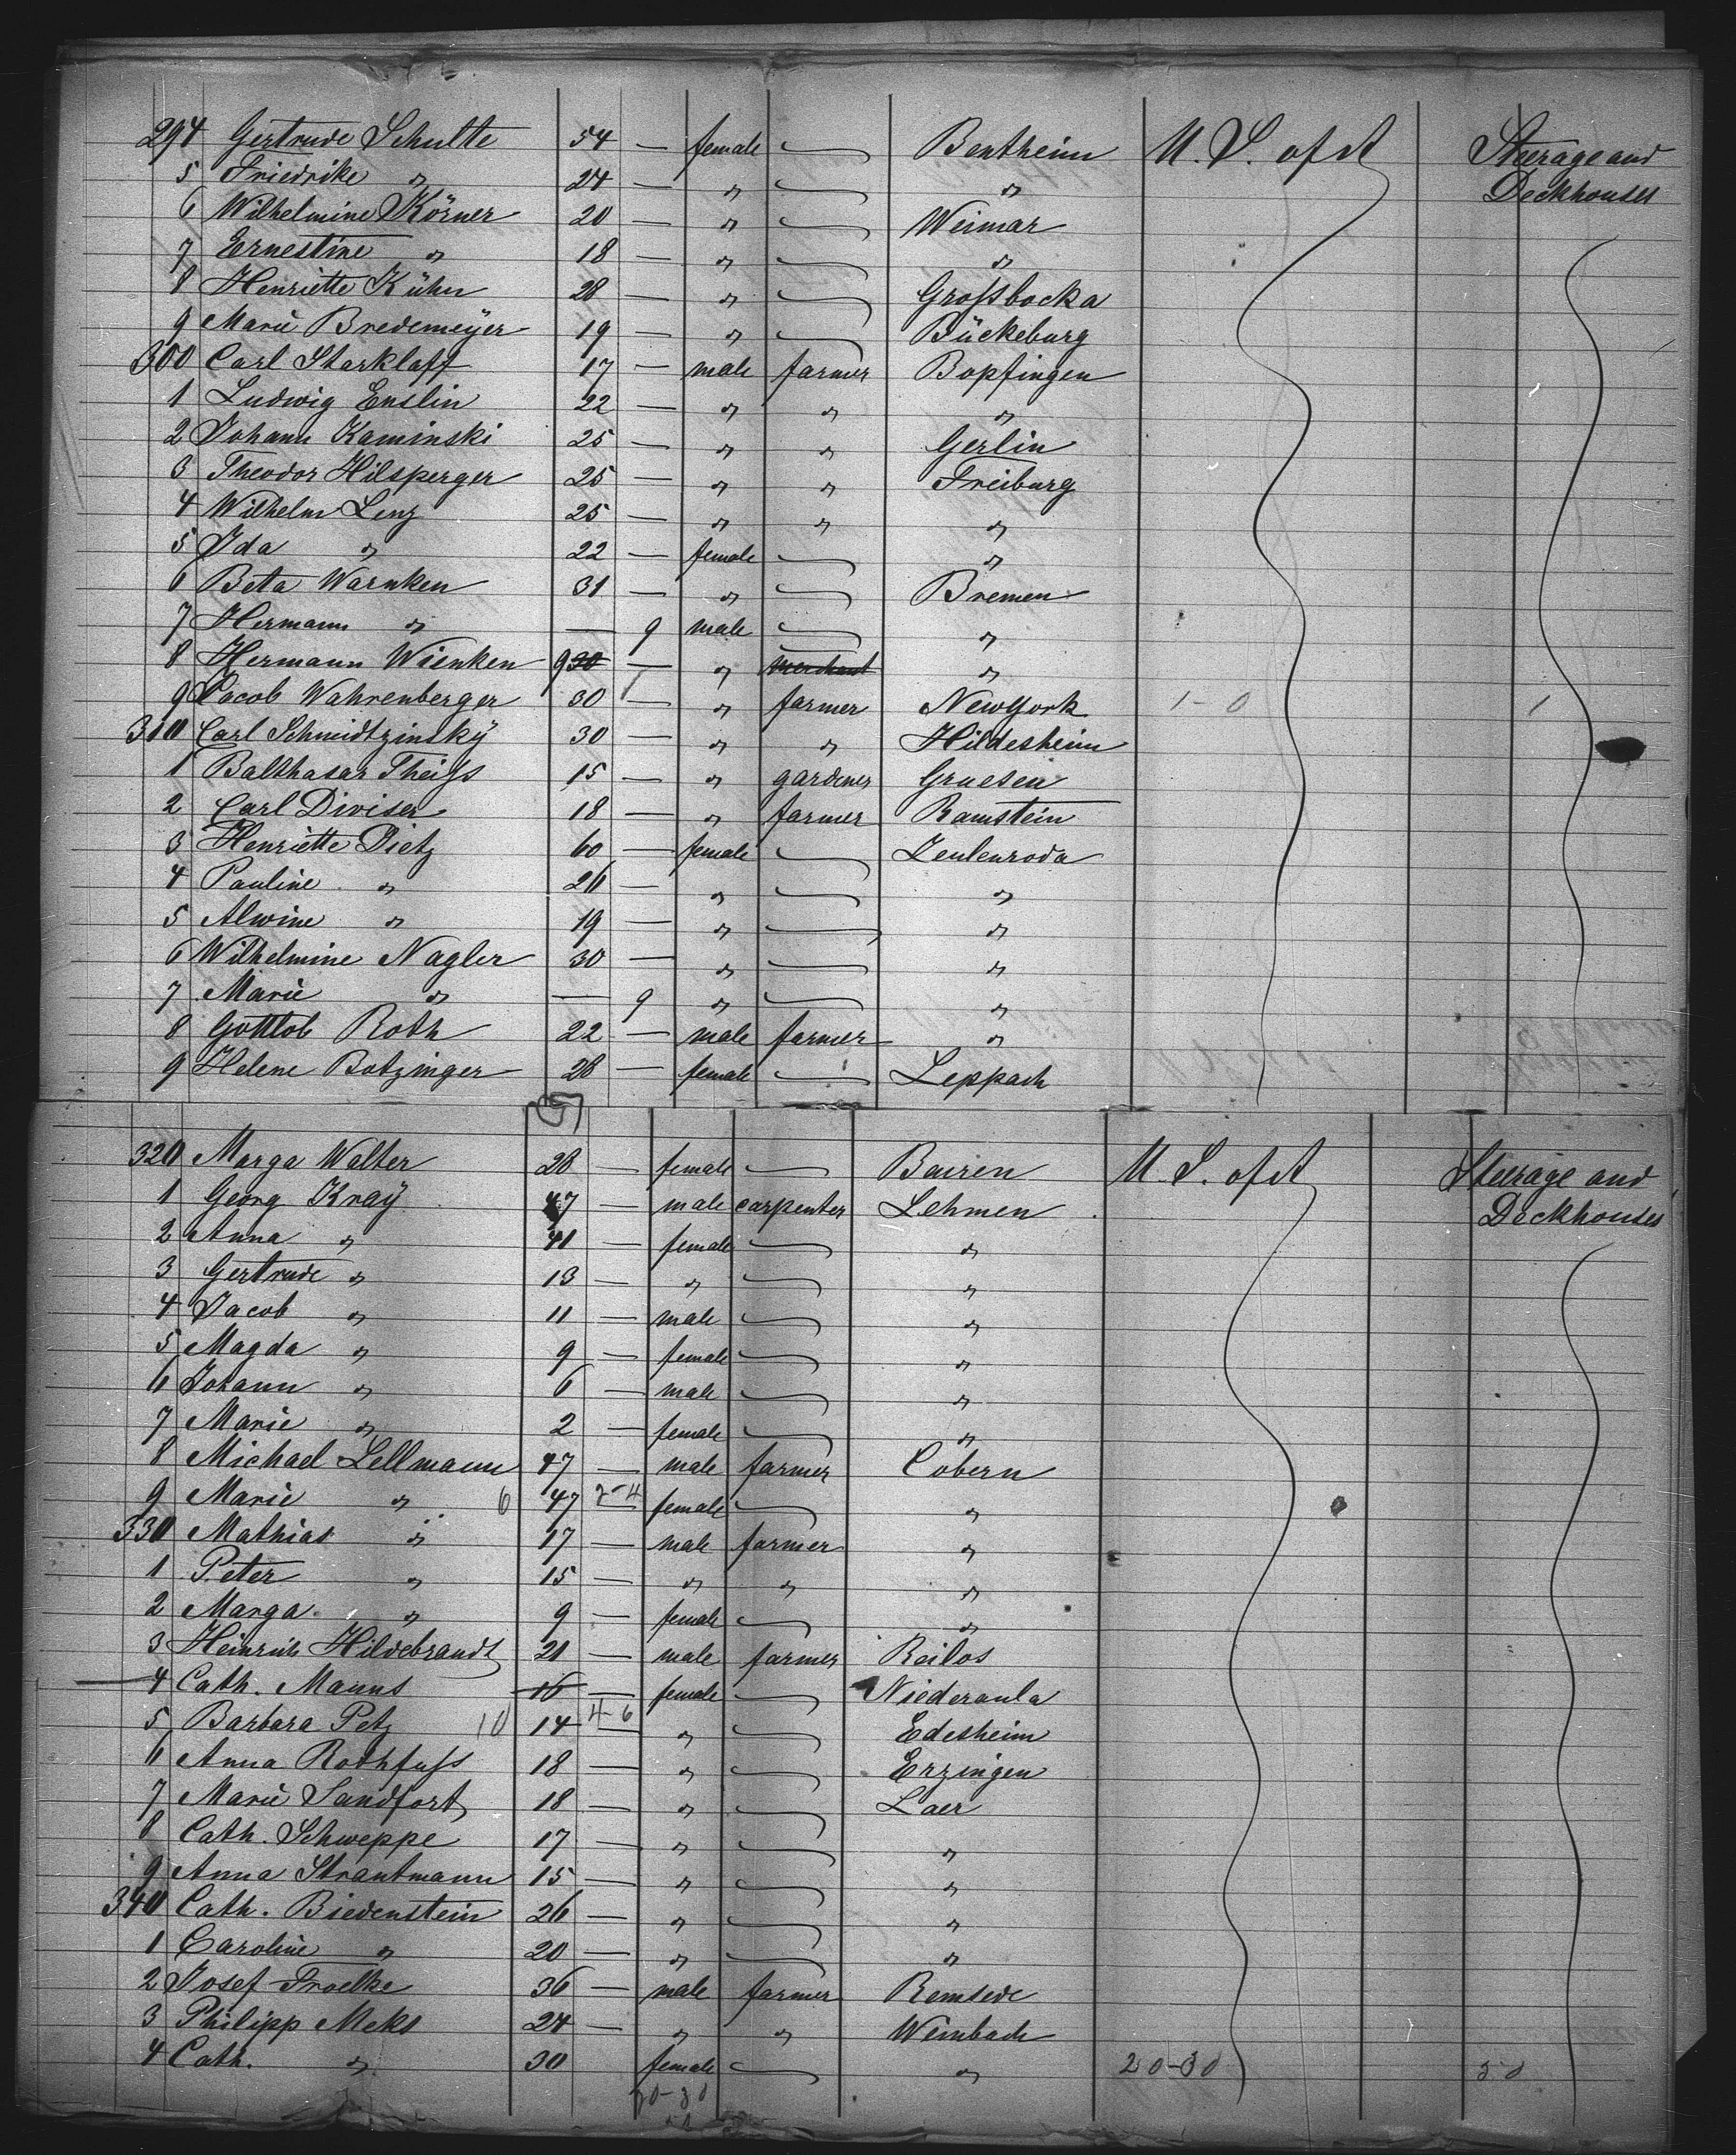 294 Gertrude Schulte 54 — female — Bentheim U. S. of A Steerage and
5 Friedrike " 24 — " — " Deckhouses
6 Wilhelmine Körner 20 — " — Weimar
7 Ernestine " 18 — " — "
8 Henriette Kühn 28 — " — Grossbocka
9 Marie Bredemeyer 19 — " — Bückeburg
300 Carl Starklaff 17 — male farmer Bopfingen
1 Ludwig Enslin 22 — " " "
2 Johann Kaminski 25 — " " Gerlin
3 Theodor Hilsperger 25 — " " Freiburg
4 Wilhelm Lenz 25 — " " "
5 Ida " 22 — female — "
6 Beta Warnken 31 — " — Bremen
7 Hermann " — 9 male — "
8 Hermann Wienken 9 30 — " merchant "
9 Jacob Wahrenberger 30 — " farmer NewYork 1-0 1
310 Carl Schmidtzinsky 30 — " " Hildesheim
1 Balthasar Theiss 15 — " gardener Gruesen
2 Carl Diviser 18 — " farmer Ramstein
3 Henriette Dietz 60 — female — Zeulenroda
4 Pauline " 26 — " — "
5 Alwine " 19 — " — "
6 Wilhelmine Nagler 30 — " — "
7 Marie " — 9 " — "
8 Gottlob Roth 22 — male farmer "
9 Helene Botzinger 28 — female — Leppach
320 Marga Walter 28 — female — Bairen U. S. of A Steerage and
1 Georg Kray 47 — male carpenter Lehmen Deckhouses
2 Anna " 41 — female — "
3 Gertrude " 13 — " — "
4 Jacob " 11 — male — "
5 Magda " 9 — female — "
6 Johann " 6 — male — "
7 Marie " 2 — female — "
8 Michael Lellmann 47 — male farmer Cobern
9 Marie " 6 47 2-4 female — "
330 Mathias " 17 — male farmer "
1 Peter " 15 — " " "
2 Marga. " 9 — female — "
3 Heinrich Hildebrandt 21 — male farmer Reilos
4 Cath. Manns 16 — female — Niederaula
5 Barbara Petz 10 14 4-6 " — Edesheim
6 Anna Rothfuss 18 — " — Erzingen
7 Marie Sandfort 18 — " — Laer
8 Cath. Schweppe 17 — " — "
9 Anna Strautmann 15 — " — "
340 Cath. Biedenstein 26 — " — "
1 Caroline " 20 — " — "
2 Josef Froelke 36 — male farmer Remsede
3 Philipp Meks 24 — " " Weinbach
4 Cath. " 30 female — " 20-30 50
20-30